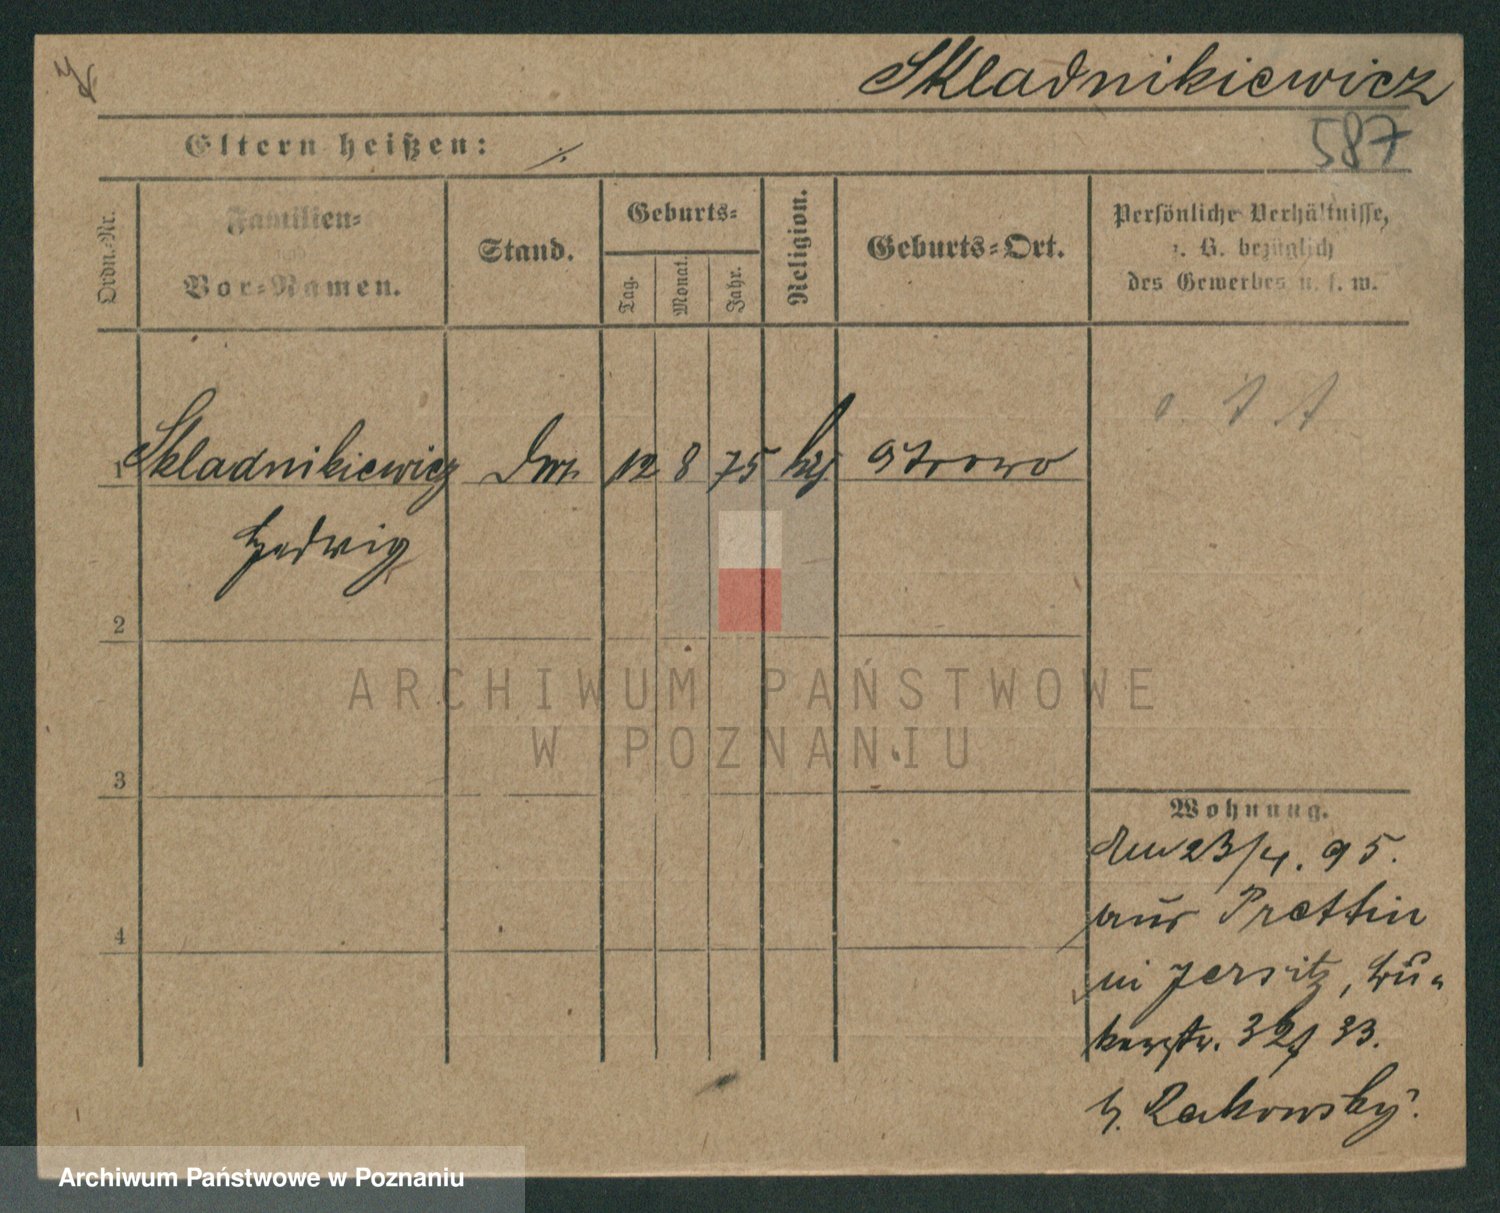 Skladnikiewicz
587
Eltern heißen: ./.
Ordn.-Nr.
Familien-
Vor-Namen.
Stand.
Geburts-
Tag.
Monat.
Jahr.
Religion.
Geburts-Ort.
Persönliche Verhältnisse,
z. B. bezüglich
des Gewerbes u. s. w.
1 Skladnikiewicz 12 8 75 Ostrowo
Hedwig
2
3
4
Wohnung.
23/4. 95.
aus Prettin
in Jersitz,
32/33.
b. Rakowsky.
ARCHIWUM PAŃSTWOWE
W POZNANIU
Archiwum Państwowe w Poznaniu